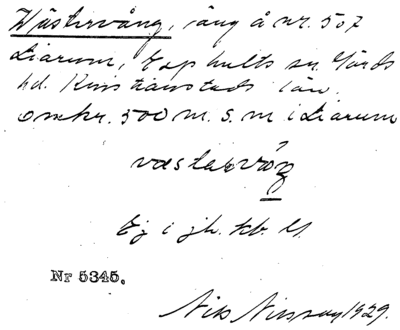 Wästervång, äng å nr. 507
Liarum, Esphults sn. Gärds
hd. Kristianstads län.
omkr. 500 m. s. m i Liarum
væstarvåŋ
Ej i jh. kb. U.
Nr 5345.
Nils Nilsson 1929.